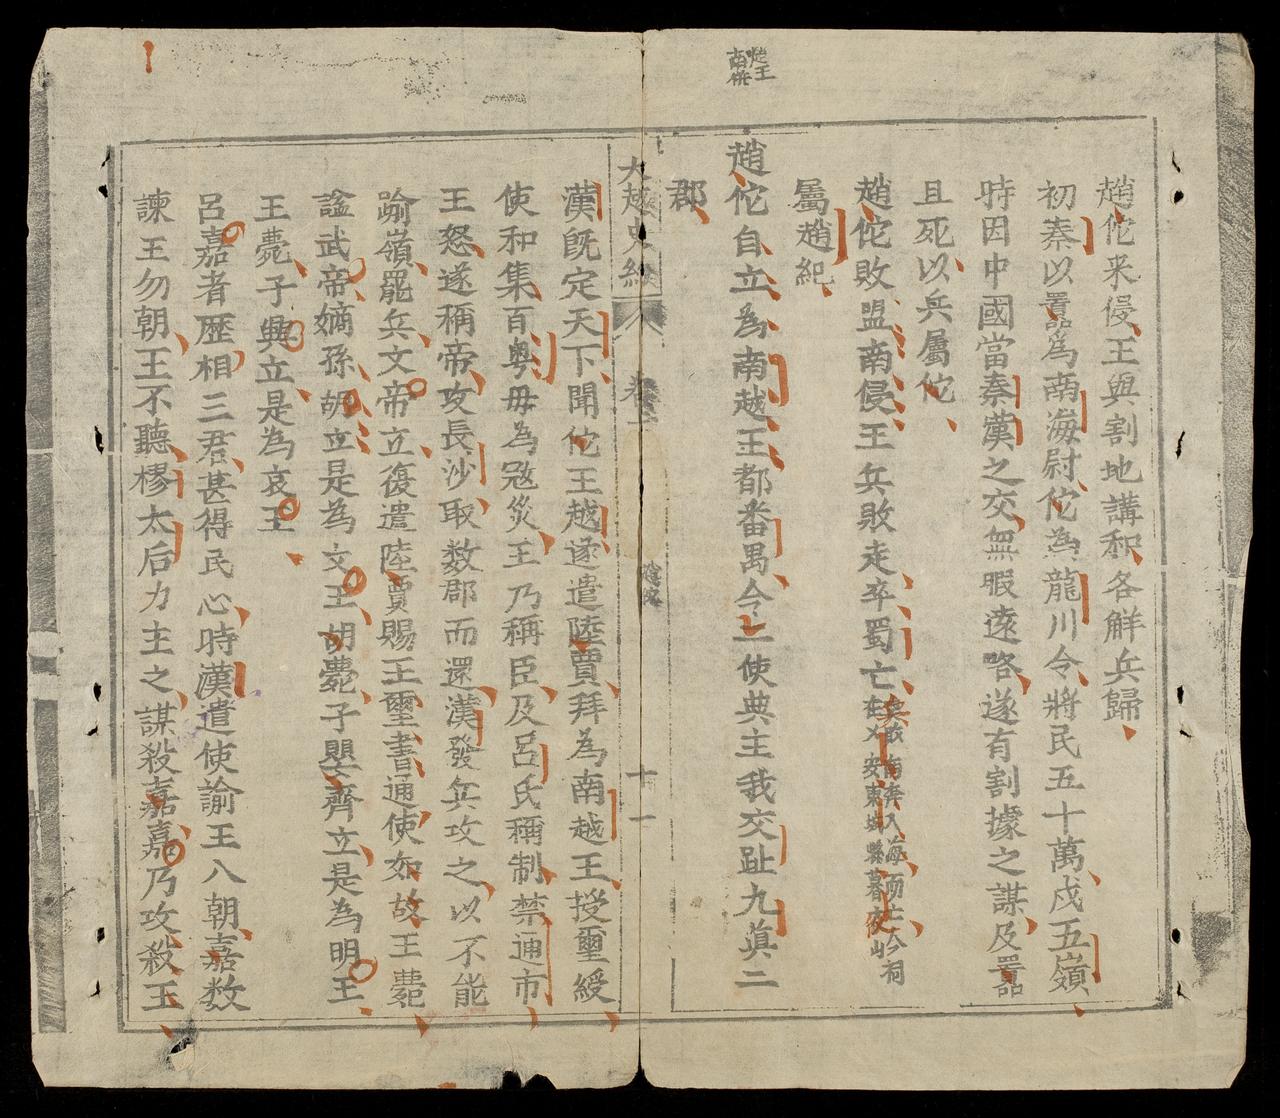 趙佗来侵王與割地講和各觧兵歸
初秦以囂為南海尉佗為龍川令將民五十萬戍五嶺
時因中國當秦漢之交無暇遠略遂有割據之謀及囂
且死以兵屬佗
趙佗敗盟南侵王兵敗走卒蜀亡矣或南奔入海而亡今祠
在乂安東城縣暮夜山
屬趙紀
趙佗自立為南越王都番禺令二使典主我交趾九真二
郡
大越史約
卷之一
十一
漢旣定天下聞佗王越遂遣陸賈拜為南越王授璽綬
使和集百粵毋為冦災王乃稱臣及呂氏稱制禁通市
王怒遂稱帝攻長沙取数郡而還漢發兵攻之以不能
踰嶺罷兵文帝立復遣陸賈賜王璽書通使如故王薨
諡武帝嫡孫胡立是為文王胡薨子嬰齊立是為明王
王薨子興立是為哀王
呂嘉者歷相三君甚得民心時漢遣使諭王入朝嘉数
諫王勿朝王不聽樛太后力主之謀殺嘉嘉乃攻殺王